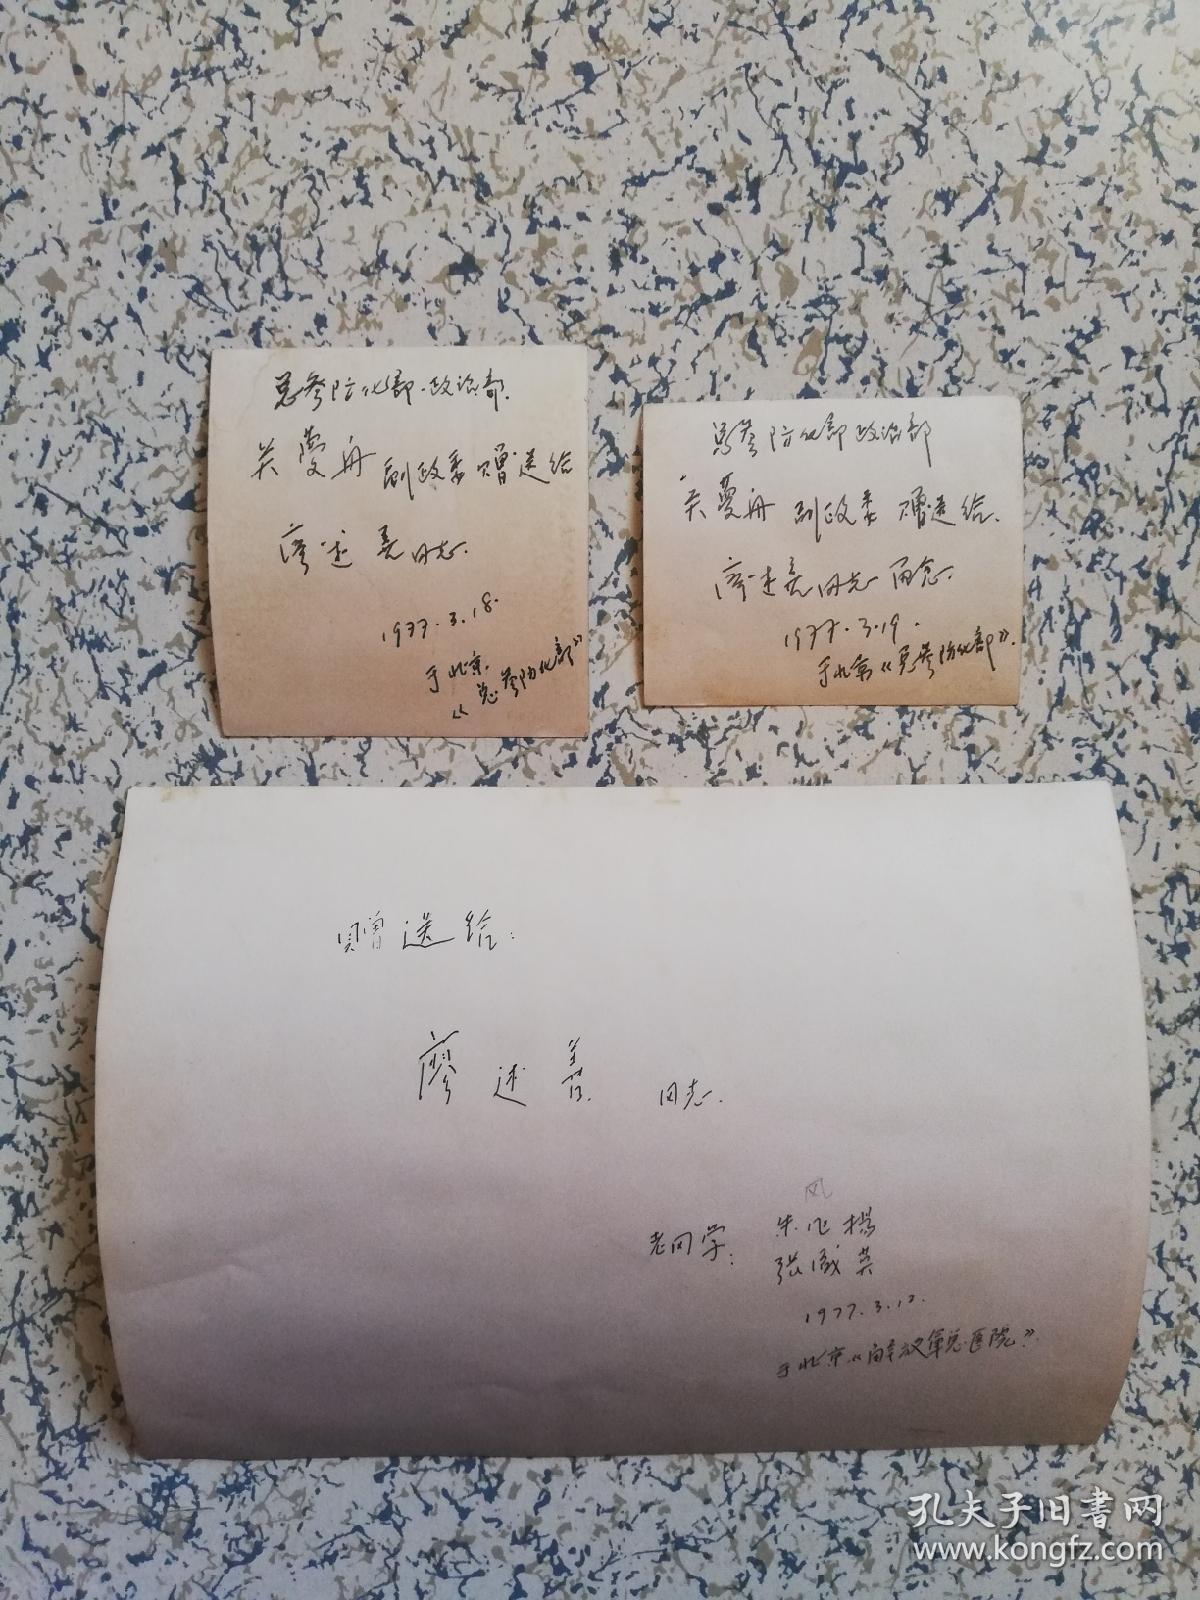 总参防化部政治部.
吴蔓舟副政委赠送给
廖述善同志.
1977.3.18.
于北京.
《总参防化部》
总参防化部政治部
吴蔓舟副政委赠送给.
廖述善同志留念.
1977.3.19.
于北京《总参防化部》.
赠送给:
廖述善 同志.
风
老同学: 朱作楊
张诚英
1977.3.12.
于北京《解放軍总医院》.
孔夫子旧書网
www.kongfz.com